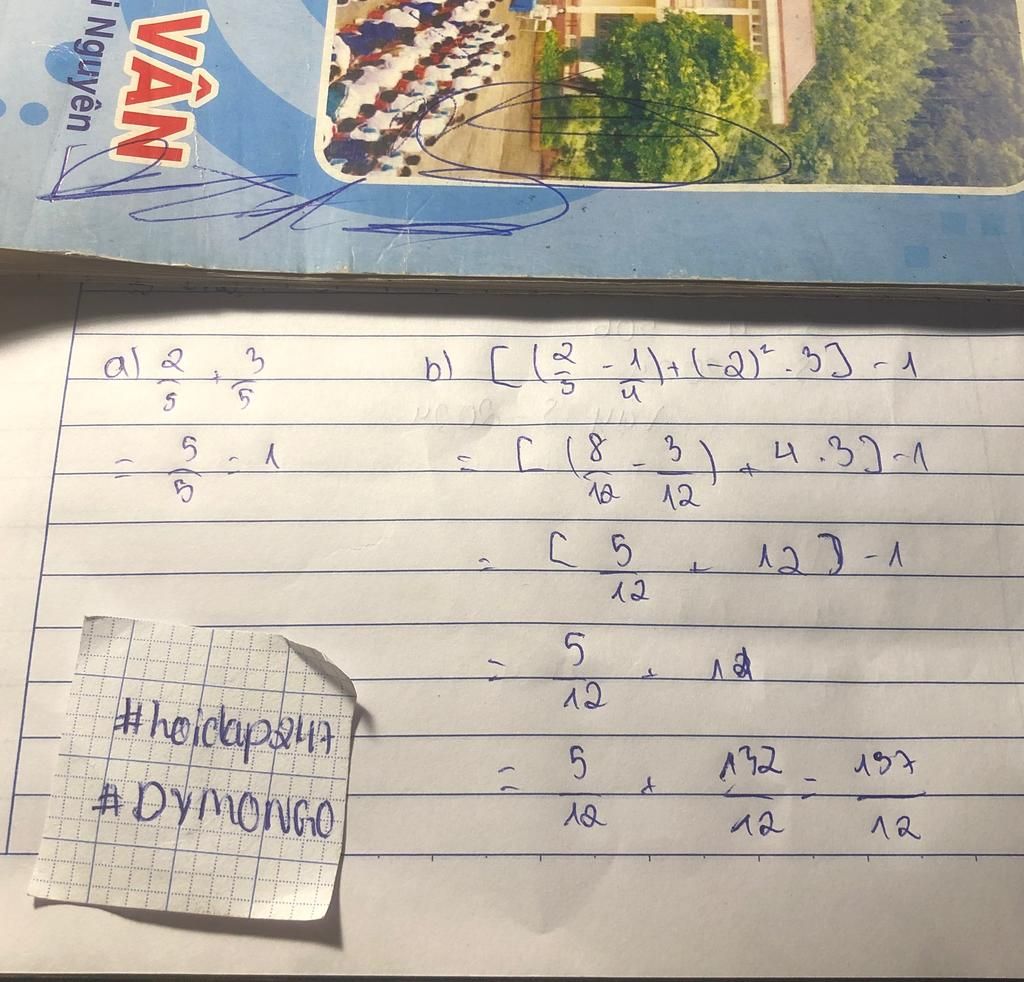 VÂN
i Nguyên
a) 2/5 + 3/5
= 5/5 = 1
b) [(2/3 - 1/4) + (-2)² . 3] - 1
= [(8/12 - 3/12) + 4 . 3] - 1
= [5/12 + 12] - 1
= 5/12 + 11
= 5/12 + 132/12 = 137/12
#hoidap247
#DYMONGO